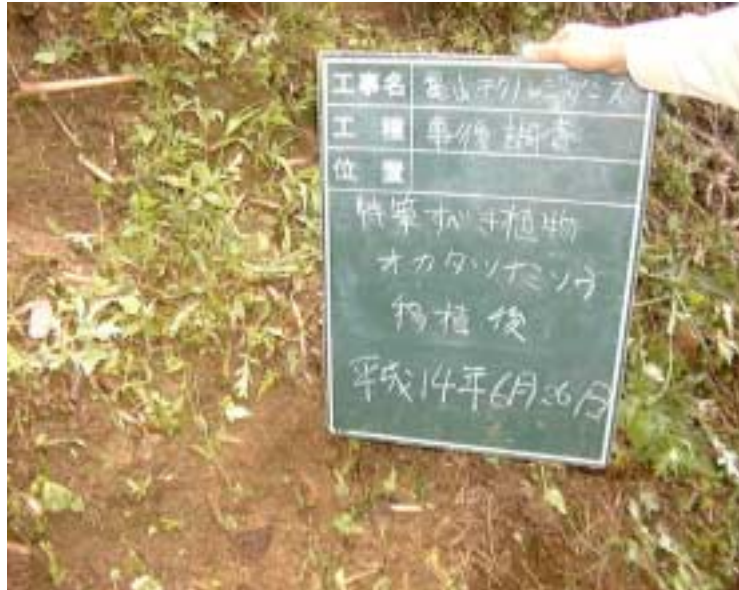 工事名 亀山テクノヒルズ
工種 事後調査
位置
特筆すべき植物
オカタツナミソウ
移植後
平成14年6月26日